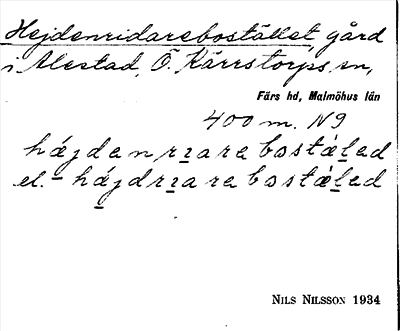 Hejdenridarebostället gård
i Alestad, Ö. Kärrstorps sn,
Färs hd, Malmöhus län
400 m. N9
hǽjdenrɪarebostǽlad
el. – hǽjdrɪarebostǽlad
NILS NILSSON 1934